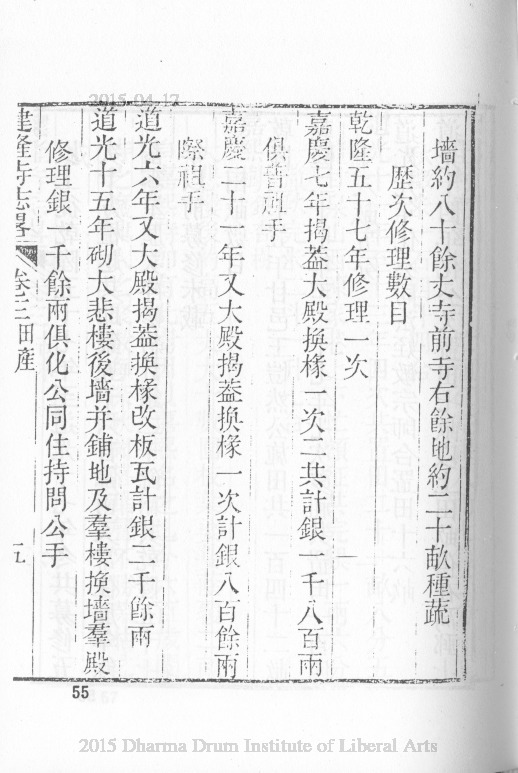 2015-04-17
墻約八十餘丈寺前寺右餘地約二十畝種蔬
歷次修理數目
乾隆五十七年修理一次
嘉慶七年揭葢大殿換椽一次二共計銀一千八百兩
俱善祖手
嘉慶二十一年又大殿揭葢換椽一次計銀八百餘兩
際祖手
道光六年又大殿揭葢換椽改板瓦計銀二千餘兩
道光十五年砌大悲樓後墻并鋪地及羣樓換墻羣殿
修理銀一千餘兩俱化公同住持問公手
建隆寺志畧 卷三田產 十九
55
2015 Dharma Drum Institute of Liberal Arts